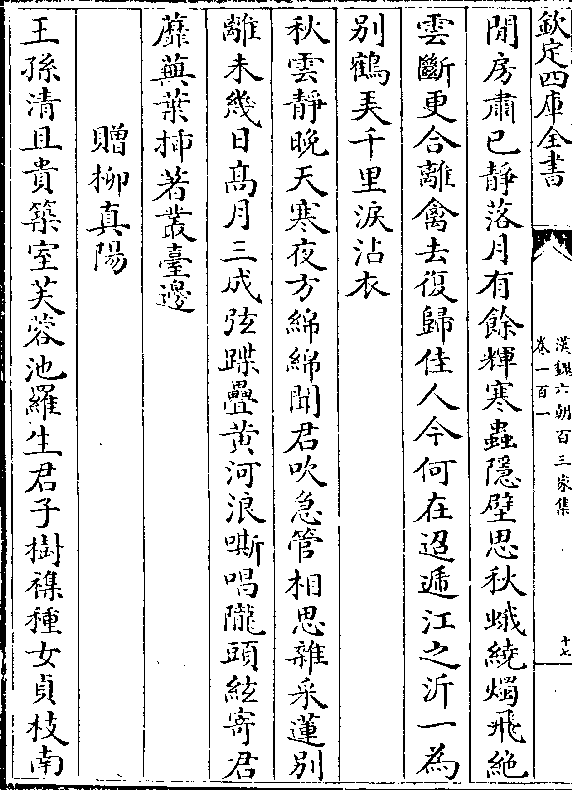 欽定四庫全書
漢魏六朝百三家集
卷一百一
十七
閒房肅已靜落月有餘輝寒蟲隱壁思秋蛾繞燭飛絶
雲斷更合離禽去復歸佳人今何在迢遞江之沂一為
别鶴弄千里淚沾衣
秋雲靜晚天寒夜方綿綿聞君吹急管相思雜采蓮别
離未幾日髙月三成弦蹀疊黄河浪嘶唱隴頭絃寄君
蘼蕪葉揷著叢臺邊
贈柳真陽
王孫清且貴築室芙蓉池羅生君子樹襍種女貞枝南